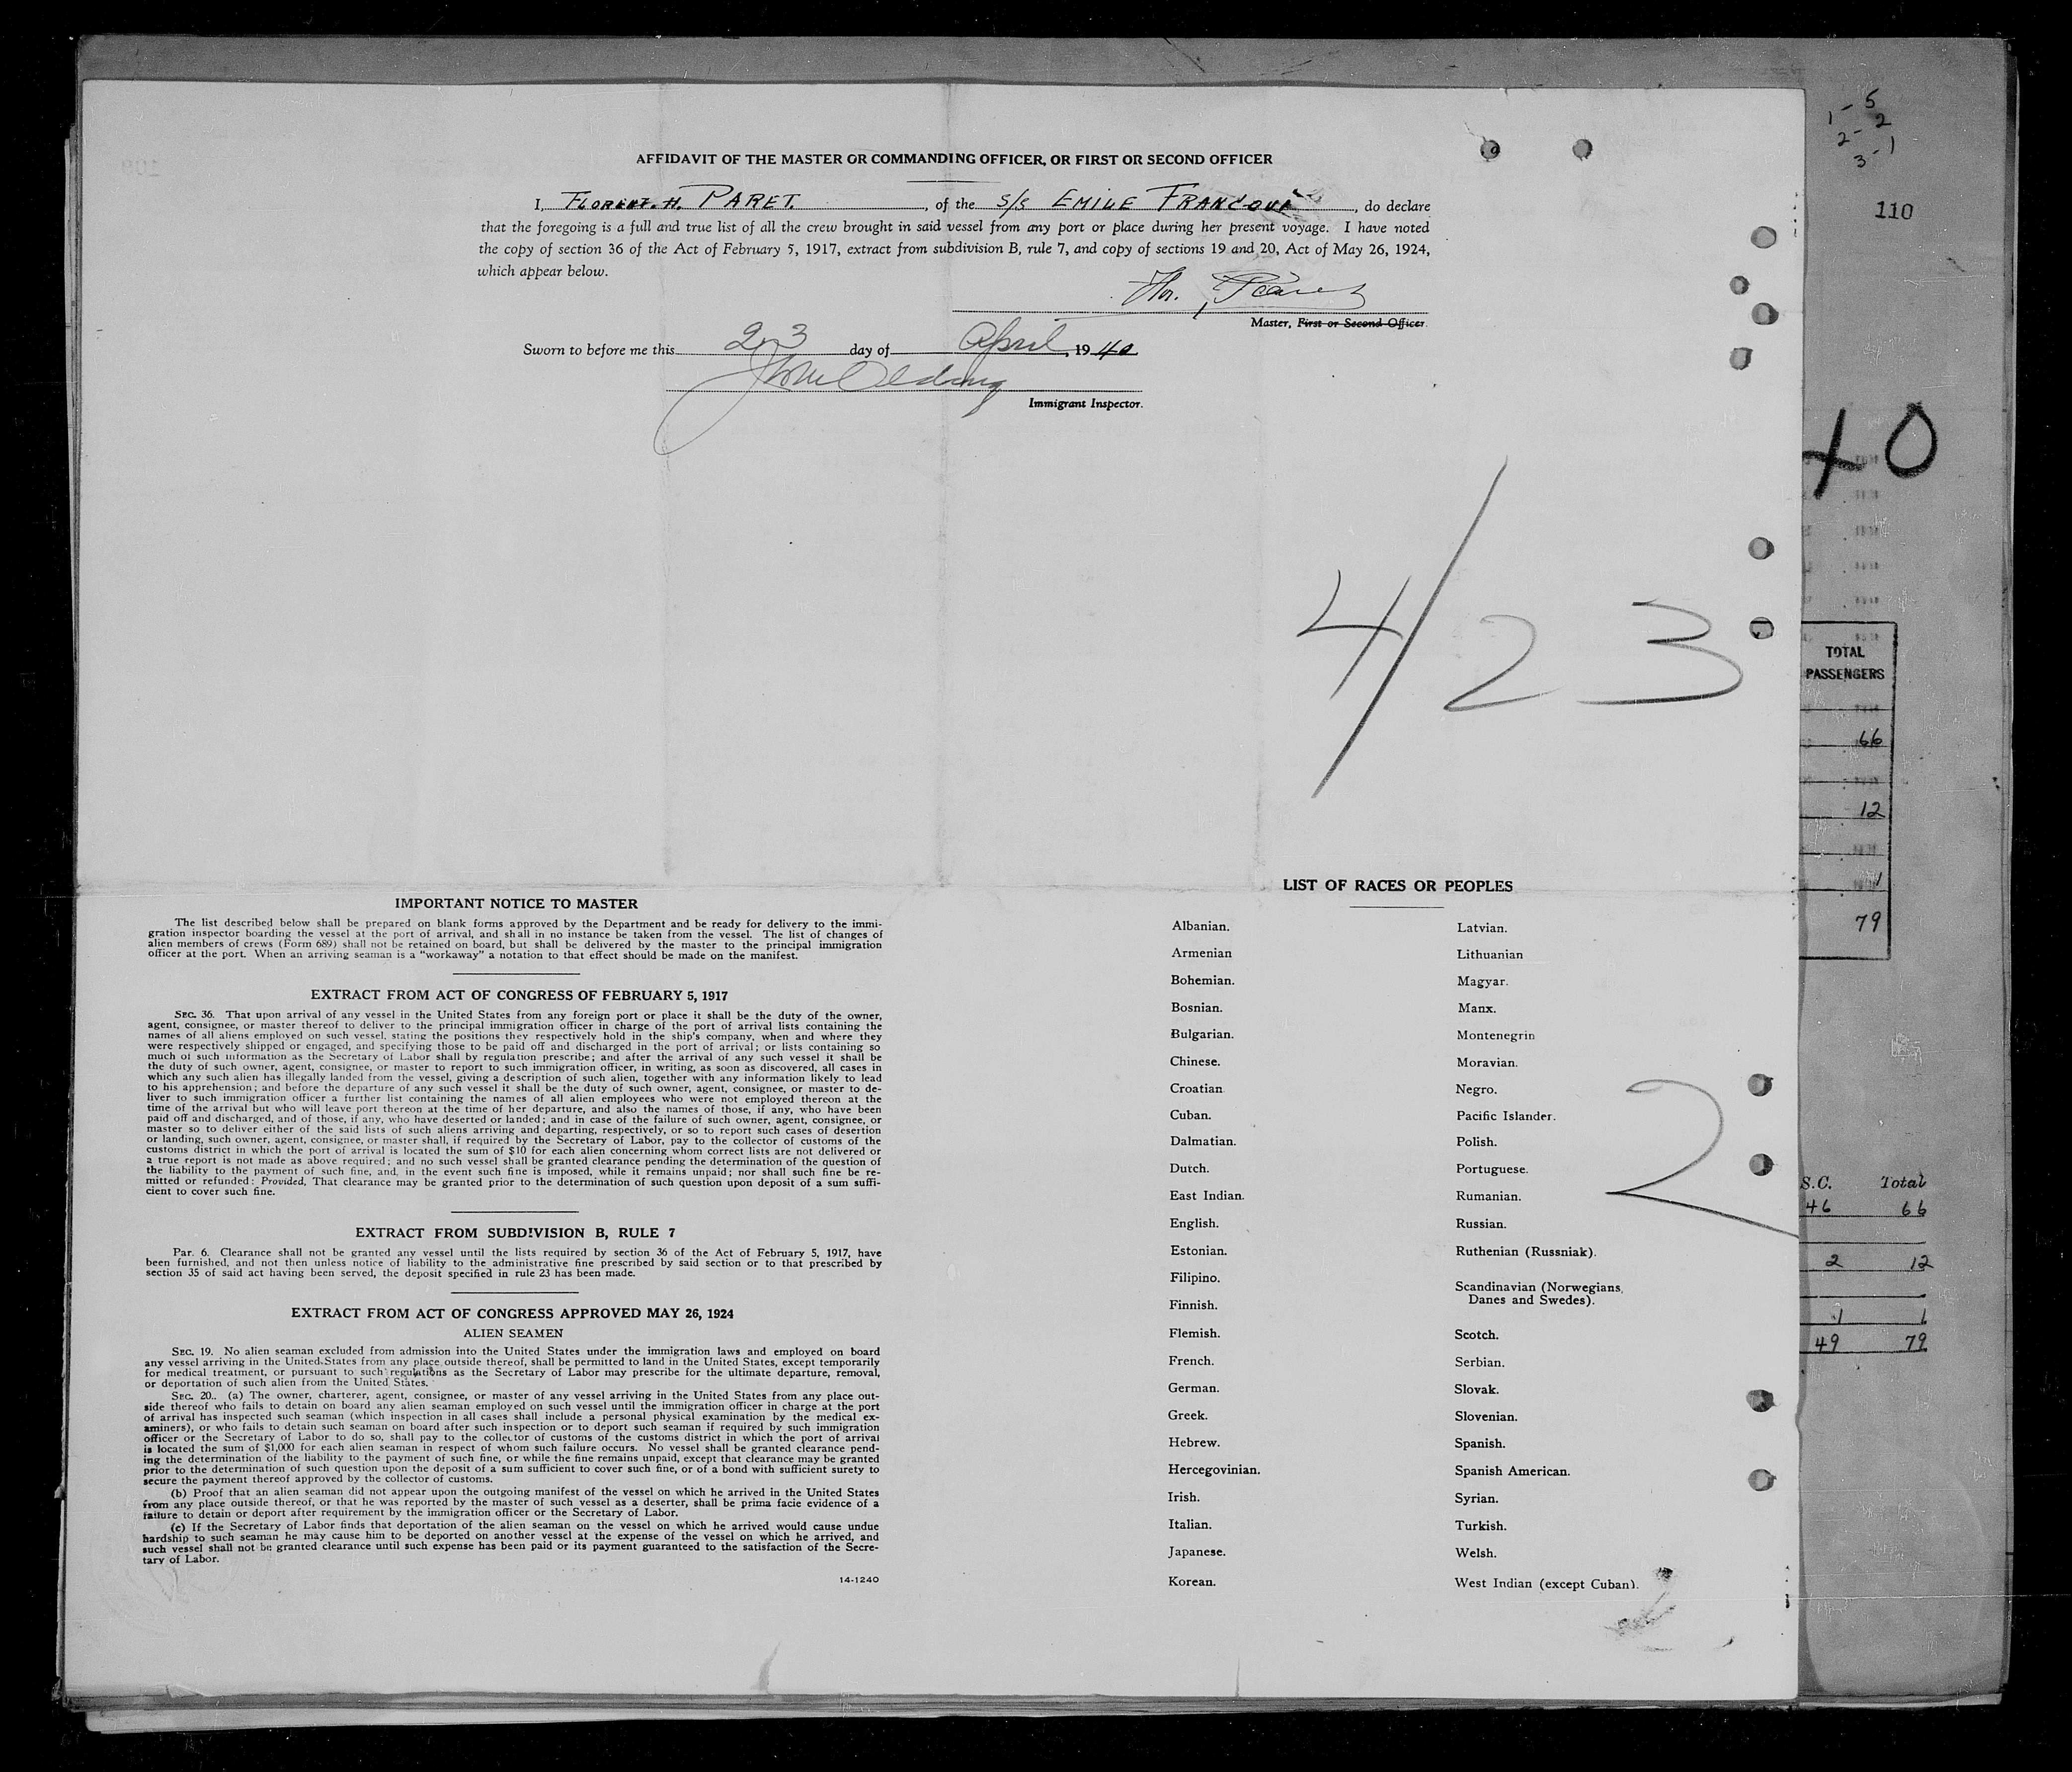 AFFIDAVIT OF THE MASTER OR COMMANDING OFFICER, OR FIRST OR SECOND OFFICER
I, FLORENT. H. PARET., of the S/S EMILE FRANCQUI, do declare
that the foregoing is a full and true list of all the crew brought in said vessel from any port or place during her present voyage. I have noted
the copy of section 36 of the Act of February 5, 1917, extract from subdivision B, rule 7, and copy of sections 19 and 20, Act of May 26, 1924,
which appear below.
Flor. Paret
Master, First or Second Officer.
Sworn to before me this 23 day of April, 1940
Immigrant Inspector.
4/23
IMPORTANT NOTICE TO MASTER
The list described below shall be prepared on blank forms approved by the Department and be ready for delivery to the immi-
gration inspector boarding the vessel at the port of arrival, and shall in no instance be taken from the vessel. The list of changes of
alien members of crews (Form 689) shall not be retained on board, but shall be delivered by the master to the principal immigration
officer at the port. When an arriving seaman is a "workaway" a notation to that effect should be made on the manifest.
EXTRACT FROM ACT OF CONGRESS OF FEBRUARY 5, 1917
SEC. 36. That upon arrival of any vessel in the United States from any foreign port or place it shall be the duty of the owner,
agent, consignee, or master thereof to deliver to the principal immigration officer in charge of the port of arrival lists containing the
names of all aliens employed on such vessel, stating the positions they respectively hold in the ship's company, when and where they
were respectively shipped or engaged, and specifying those to be paid off and discharged in the port of arrival; or lists containing so
much of such information as the Secretary of Labor shall by regulation prescribe; and after the arrival of any such vessel it shall be
the duty of such owner, agent, consignee, or master to report to such immigration officer, in writing, as soon as discovered, all cases in
which any such alien has illegally landed from the vessel, giving a description of such alien, together with any information likely to lead
to his apprehension; and before the departure of any such vessel it shall be the duty of such owner, agent, consignee, or master to de-
liver to such immigration officer a further list containing the names of all alien employees who were not employed thereon at the
time of the arrival but who will leave port thereon at the time of her departure, and also the names of those, if any, who have been
paid off and discharged, and of those, if any, who have deserted or landed; and in case of the failure of such owner, agent, consignee, or
master so to deliver either of the said lists of such aliens arriving and departing, respectively, or so to report such cases of desertion
or landing, such owner, agent, consignee, or master shall, if required by the Secretary of Labor, pay to the collector of customs of the
customs district in which the port of arrival is located the sum of $10 for each alien concerning whom correct lists are not delivered or
a true report is not made as above required; and no such vessel shall be granted clearance pending the determination of the question of
the liability to the payment of such fine, and, in the event such fine is imposed, while it remains unpaid; nor shall such fine be re-
mitted or refunded: Provided, That clearance may be granted prior to the determination of such question upon deposit of a sum suffi-
cient to cover such fine.
EXTRACT FROM SUBDIVISION B, RULE 7
Par. 6. Clearance shall not be granted any vessel until the lists required by section 36 of the Act of February 5, 1917, have
been furnished, and not then unless notice of liability to the administrative fine prescribed by said section or to that prescribed by
section 35 of said act having been served, the deposit specified in rule 23 has been made.
EXTRACT FROM ACT OF CONGRESS APPROVED MAY 26, 1924
ALIEN SEAMEN
SEC. 19. No alien seaman excluded from admission into the United States under the immigration laws and employed on board
any vessel arriving in the United States from any place outside thereof, shall be permitted to land in the United States, except temporarily
for medical treatment, or pursuant to such regulations as the Secretary of Labor may prescribe for the ultimate departure, removal,
or deportation of such alien from the United States.
SEC. 20. (a) The owner, charterer, agent, consignee, or master of any vessel arriving in the United States from any place out-
side thereof who fails to detain on board any alien seaman employed on such vessel until the immigration officer in charge at the port
of arrival has inspected such seaman (which inspection in all cases shall include a personal physical examination by the medical ex-
aminers), or who fails to detain such seaman on board after such inspection or to deport such seaman if required by such immigration
officer or the Secretary of Labor to do so, shall pay to the collector of customs of the customs district in which the port of arrival
is located the sum of $1,000 for each alien seaman in respect of whom such failure occurs. No vessel shall be granted clearance pend-
ing the determination of the liability to the payment of such fine, or while the fine remains unpaid, except that clearance may be granted
prior to the determination of such question upon the deposit of a sum sufficient to cover such fine, or of a bond with sufficient surety to
secure the payment thereof approved by the collector of customs.
(b) Proof that an alien seaman did not appear upon the outgoing manifest of the vessel on which he arrived in the United States
from any place outside thereof, or that he was reported by the master of such vessel as a deserter, shall be prima facie evidence of a
failure to detain or deport after requirement by the immigration officer or the Secretary of Labor.
(c) If the Secretary of Labor finds that deportation of the alien seaman on the vessel on which he arrived would cause undue
hardship to such seaman he may cause him to be deported on another vessel at the expense of the vessel on which he arrived, and
such vessel shall not be granted clearance until such expense has been paid or its payment guaranteed to the satisfaction of the Secre-
tary of Labor.
14-1240
LIST OF RACES OR PEOPLES
Albanian.
Armenian
Bohemian.
Bosnian.
Bulgarian.
Chinese.
Croatian
Cuban.
Dalmatian.
Dutch.
East Indian.
English.
Estonian.
Filipino.
Finnish.
Flemish.
French.
German.
Greek.
Hebrew.
Hercegovinian.
Irish.
Italian.
Japanese.
Korean.
Latvian.
Lithuanian
Magyar.
Manx.
Montenegrin
Moravian.
Negro.
Pacific Islander.
Polish.
Portuguese.
Rumanian.
Russian.
Ruthenian (Russniak).
Scandinavian (Norwegians,
Danes and Swedes).
Scotch.
Serbian.
Slovak.
Slovenian.
Spanish.
Spanish American.
Syrian.
Turkish.
Welsh.
West Indian (except Cuban).
2
1 - 5
2 - 2
3 - 1
110
40
TOTAL
PASSENGERS
66
12
1
79
S.C. Total
46 66
2 12
1 1
49 79